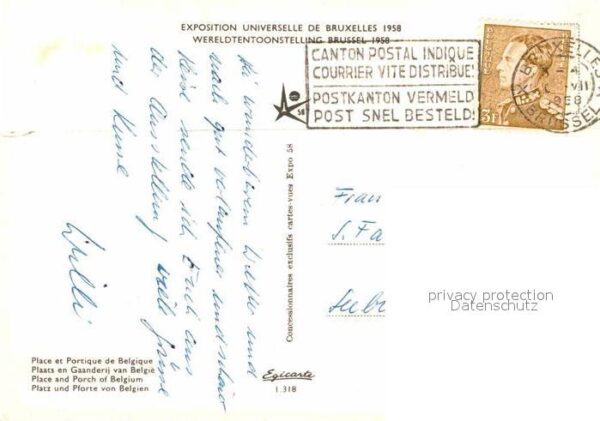 EXPOSITION UNIVERSELLE DE BRUXELLES 1958
WERELDTENTOONSTELLING BRUSSEL 1958
CANTON POSTAL INDIQUE
COURRIER VITE DISTRIBUE!
POSTKANTON VERMELD
POST SNEL BESTELD!
BRUXELLES
1958
BRUSSEL
3F
58
Bei wunderbarem Wetter und
nach gut
Reise sende ich Euch aus
der Ausstellung viele Grüsse
und Küsse
Willi
Concessionnaires exclusifs cartes-vues Expo 58
Frau
privacy protection
Datenschutz
Place et Portique de Belgique
Plaats en Gaanderij van België
Place and Porch of Belgium
Platz und Pforte von Belgien
Egicarte
1.318